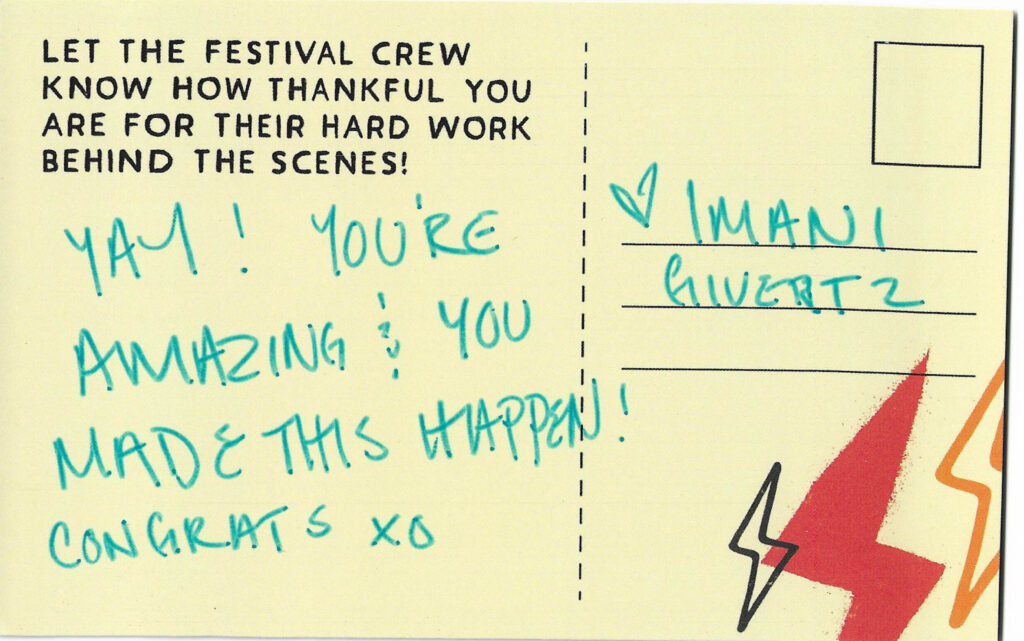 LET THE FESTIVAL CREW
KNOW HOW THANKFUL YOU
ARE FOR THEIR HARD WORK
BEHIND THE SCENES!
YAY! YOU'RE
AMAZING & YOU
MADE THIS HAPPEN!
CONGRATS XO
♥ IMANI
GIVERTZ